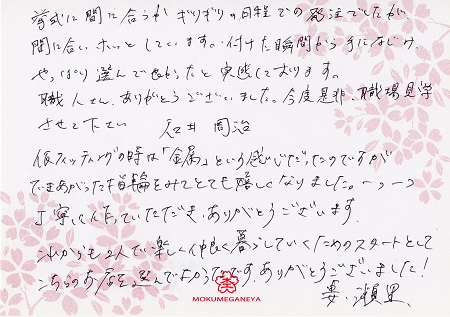 挙式に間に合うか ぎりぎりの日程での発注でしたが、
間に合い ホッとしています。付けた瞬間から手になじみ、
やっぱり選んで良かったと実感しております。
職人さん、ありがとうございました。今度是非、職場見学
させて下さい 石井 周治
仮フィッティングの時は「金属」という感じだったのですが
できあがった指輪をみてとても嬉しくなりました。一つ一つ
丁寧に作っていただき、ありがとうございます。
これからも2人で楽しく仲良く暮らしていくためのスタートとして
こちらのお店を選んでよかったです。ありがとうございました!
瀬里
MOKUMEGANEYA